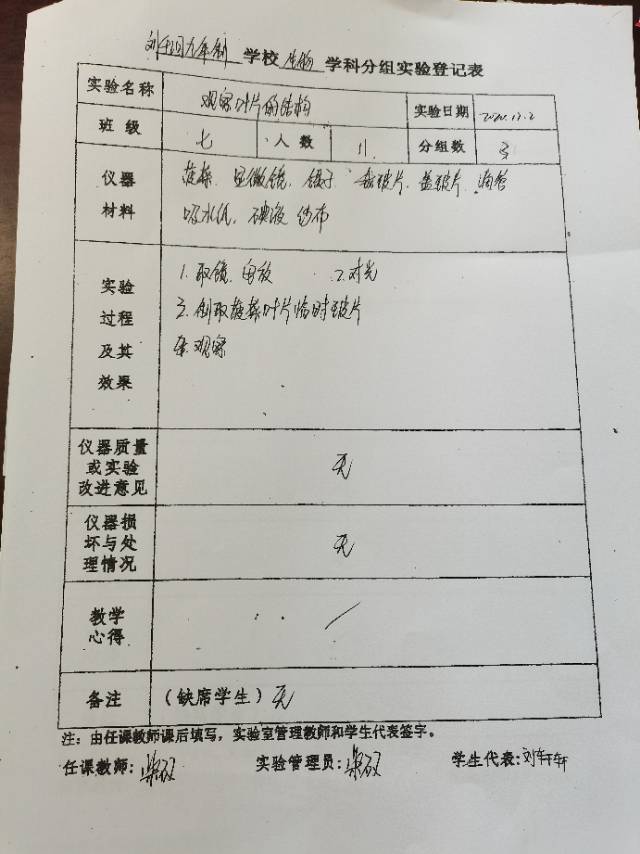 九年制 学校 生物 学科分组实验登记表
实验名称 观察叶片的结构 实验日期
班 级 七 人 数 11 分组数 3
仪器 菠菜、显微镜、镊子、载玻片、盖玻片、滴管
材料 吸水纸、碘液 纱布
实验 1.取镜 安放 2.对光
过程 3.制取菠菜叶片临时玻片
及其 观察
效果
仪器质量
或实验 无
改进意见
仪器损
坏与处 无
理情况
教学
心得
备注 (缺席学生) 无
注：由任课教师课后填写，实验室管理教师和学生代表签字。
任课教师: 实验管理员: 学生代表:刘轩轩